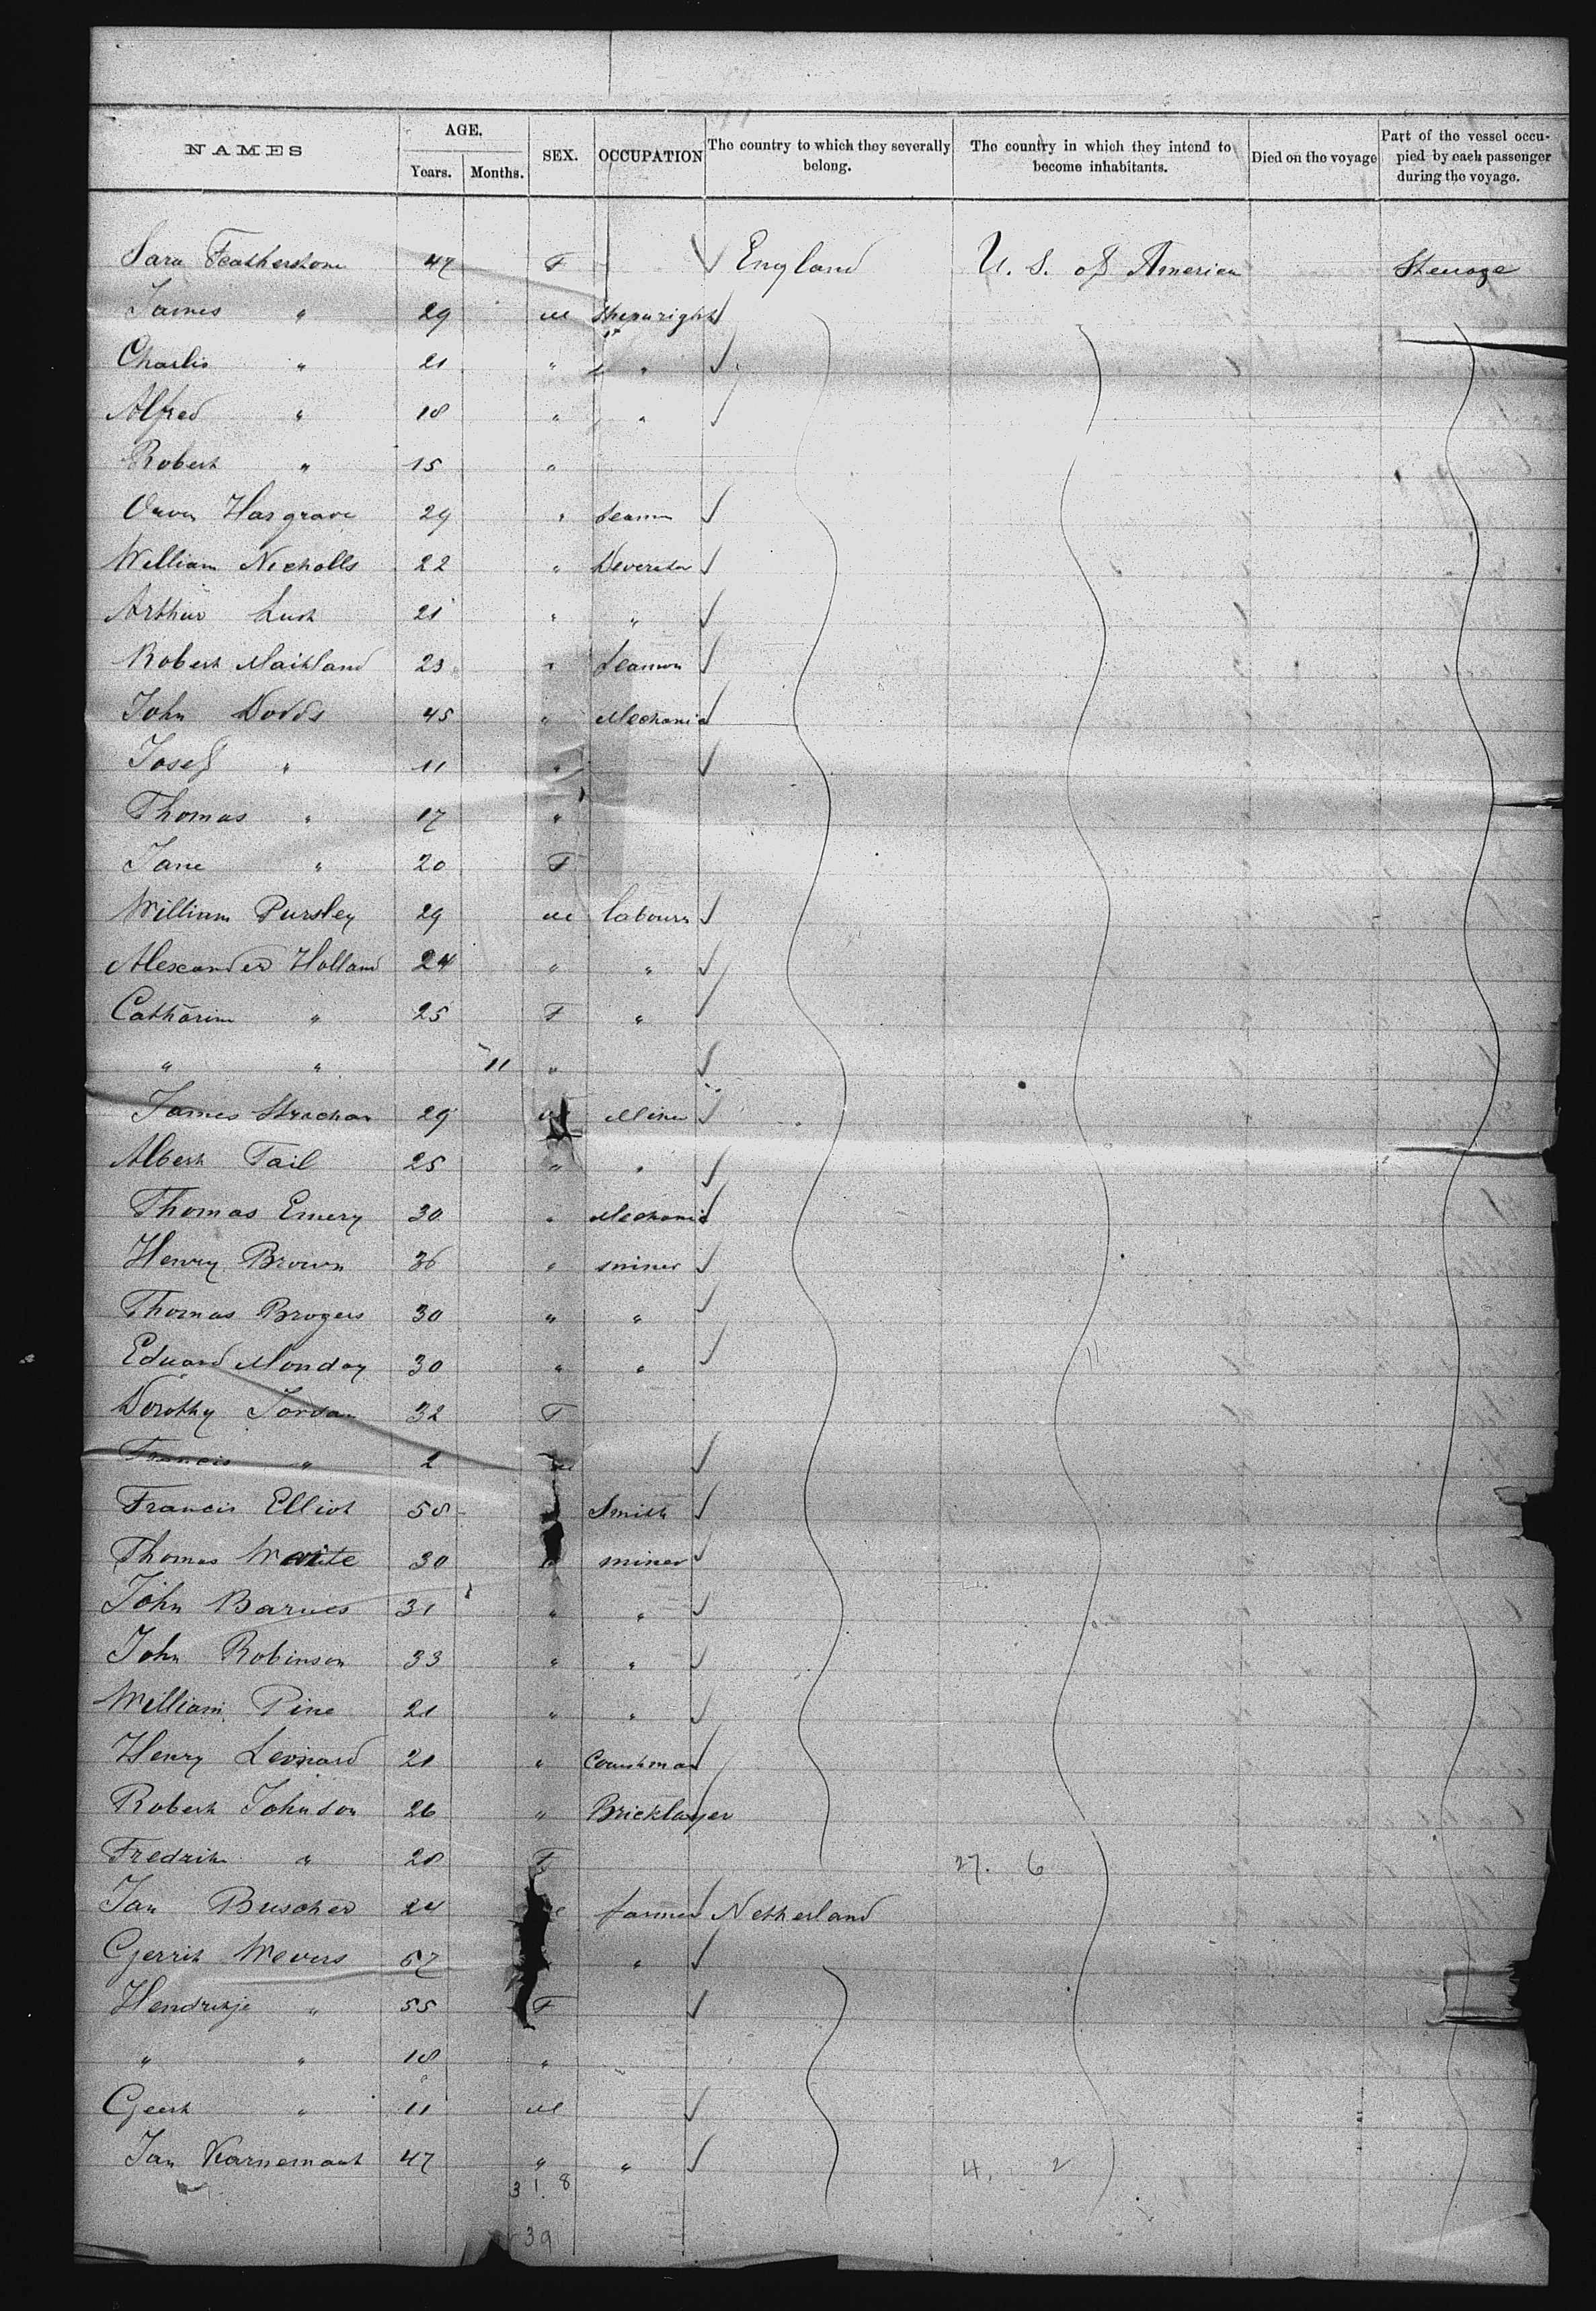 NAMES AGE. Years. Months. SEX. OCCUPATION The country to which they severally belong. The country in which they intend to become inhabitants. Died on the voyage Part of the vessel occupied by each passenger during the voyage.
Sara Featherstone 47 F ✓ England U. S. of America Steuage
James " 29 M ✓
Charlis " 21 " " ✓
Alfred " 18 " " ✓
Robert " 15 "
Hargrave 29 " Seamn ✓
William Nicholls 22 " ✓
Arthur Lush 21 " " ✓
Robert Maitland 23 " Seamen ✓
John Dodds 45 " Mechanic ✓
Josef " 11 " ✓
Thomas " 17 "
Jane " 20 F
William Pursley 29 M labourer ✓
Alexander Holland 24 " " ✓
Catharine " 25 F " ✓
" " 11 " ✓
James Strachan 29 M Miner ✓
Albert Tail 25 " " ✓
Thomas Emery 30 " Mechanic ✓
Henry Brown 36 " miner ✓
Thomas Brogers 30 " " ✓
Eduard Monday 30 " " ✓
Dorothy Jordan 32 F
Francis " 2 M ✓
Francis Elliot 58 Smith ✓
Thomas Waite 30 " miner ✓
John Barnes 31 " " ✓
John Robinson 33 " " ✓
William Pine 21 " " ✓
Henry Leonard 21 " ✓
Robert Johnson 26 " Bricklayer ✓
Fredrik " 28 F 27. 6
Jan Buscher 24 M farmer ✓ Netherland
Gerrit Wevers 57 " ✓
Hendrikje " 55 F ✓
" " 18 "
Geert " 11 M ✓
Jan Karnemaat 47 " " ✓ 4. 2
31. 8
39